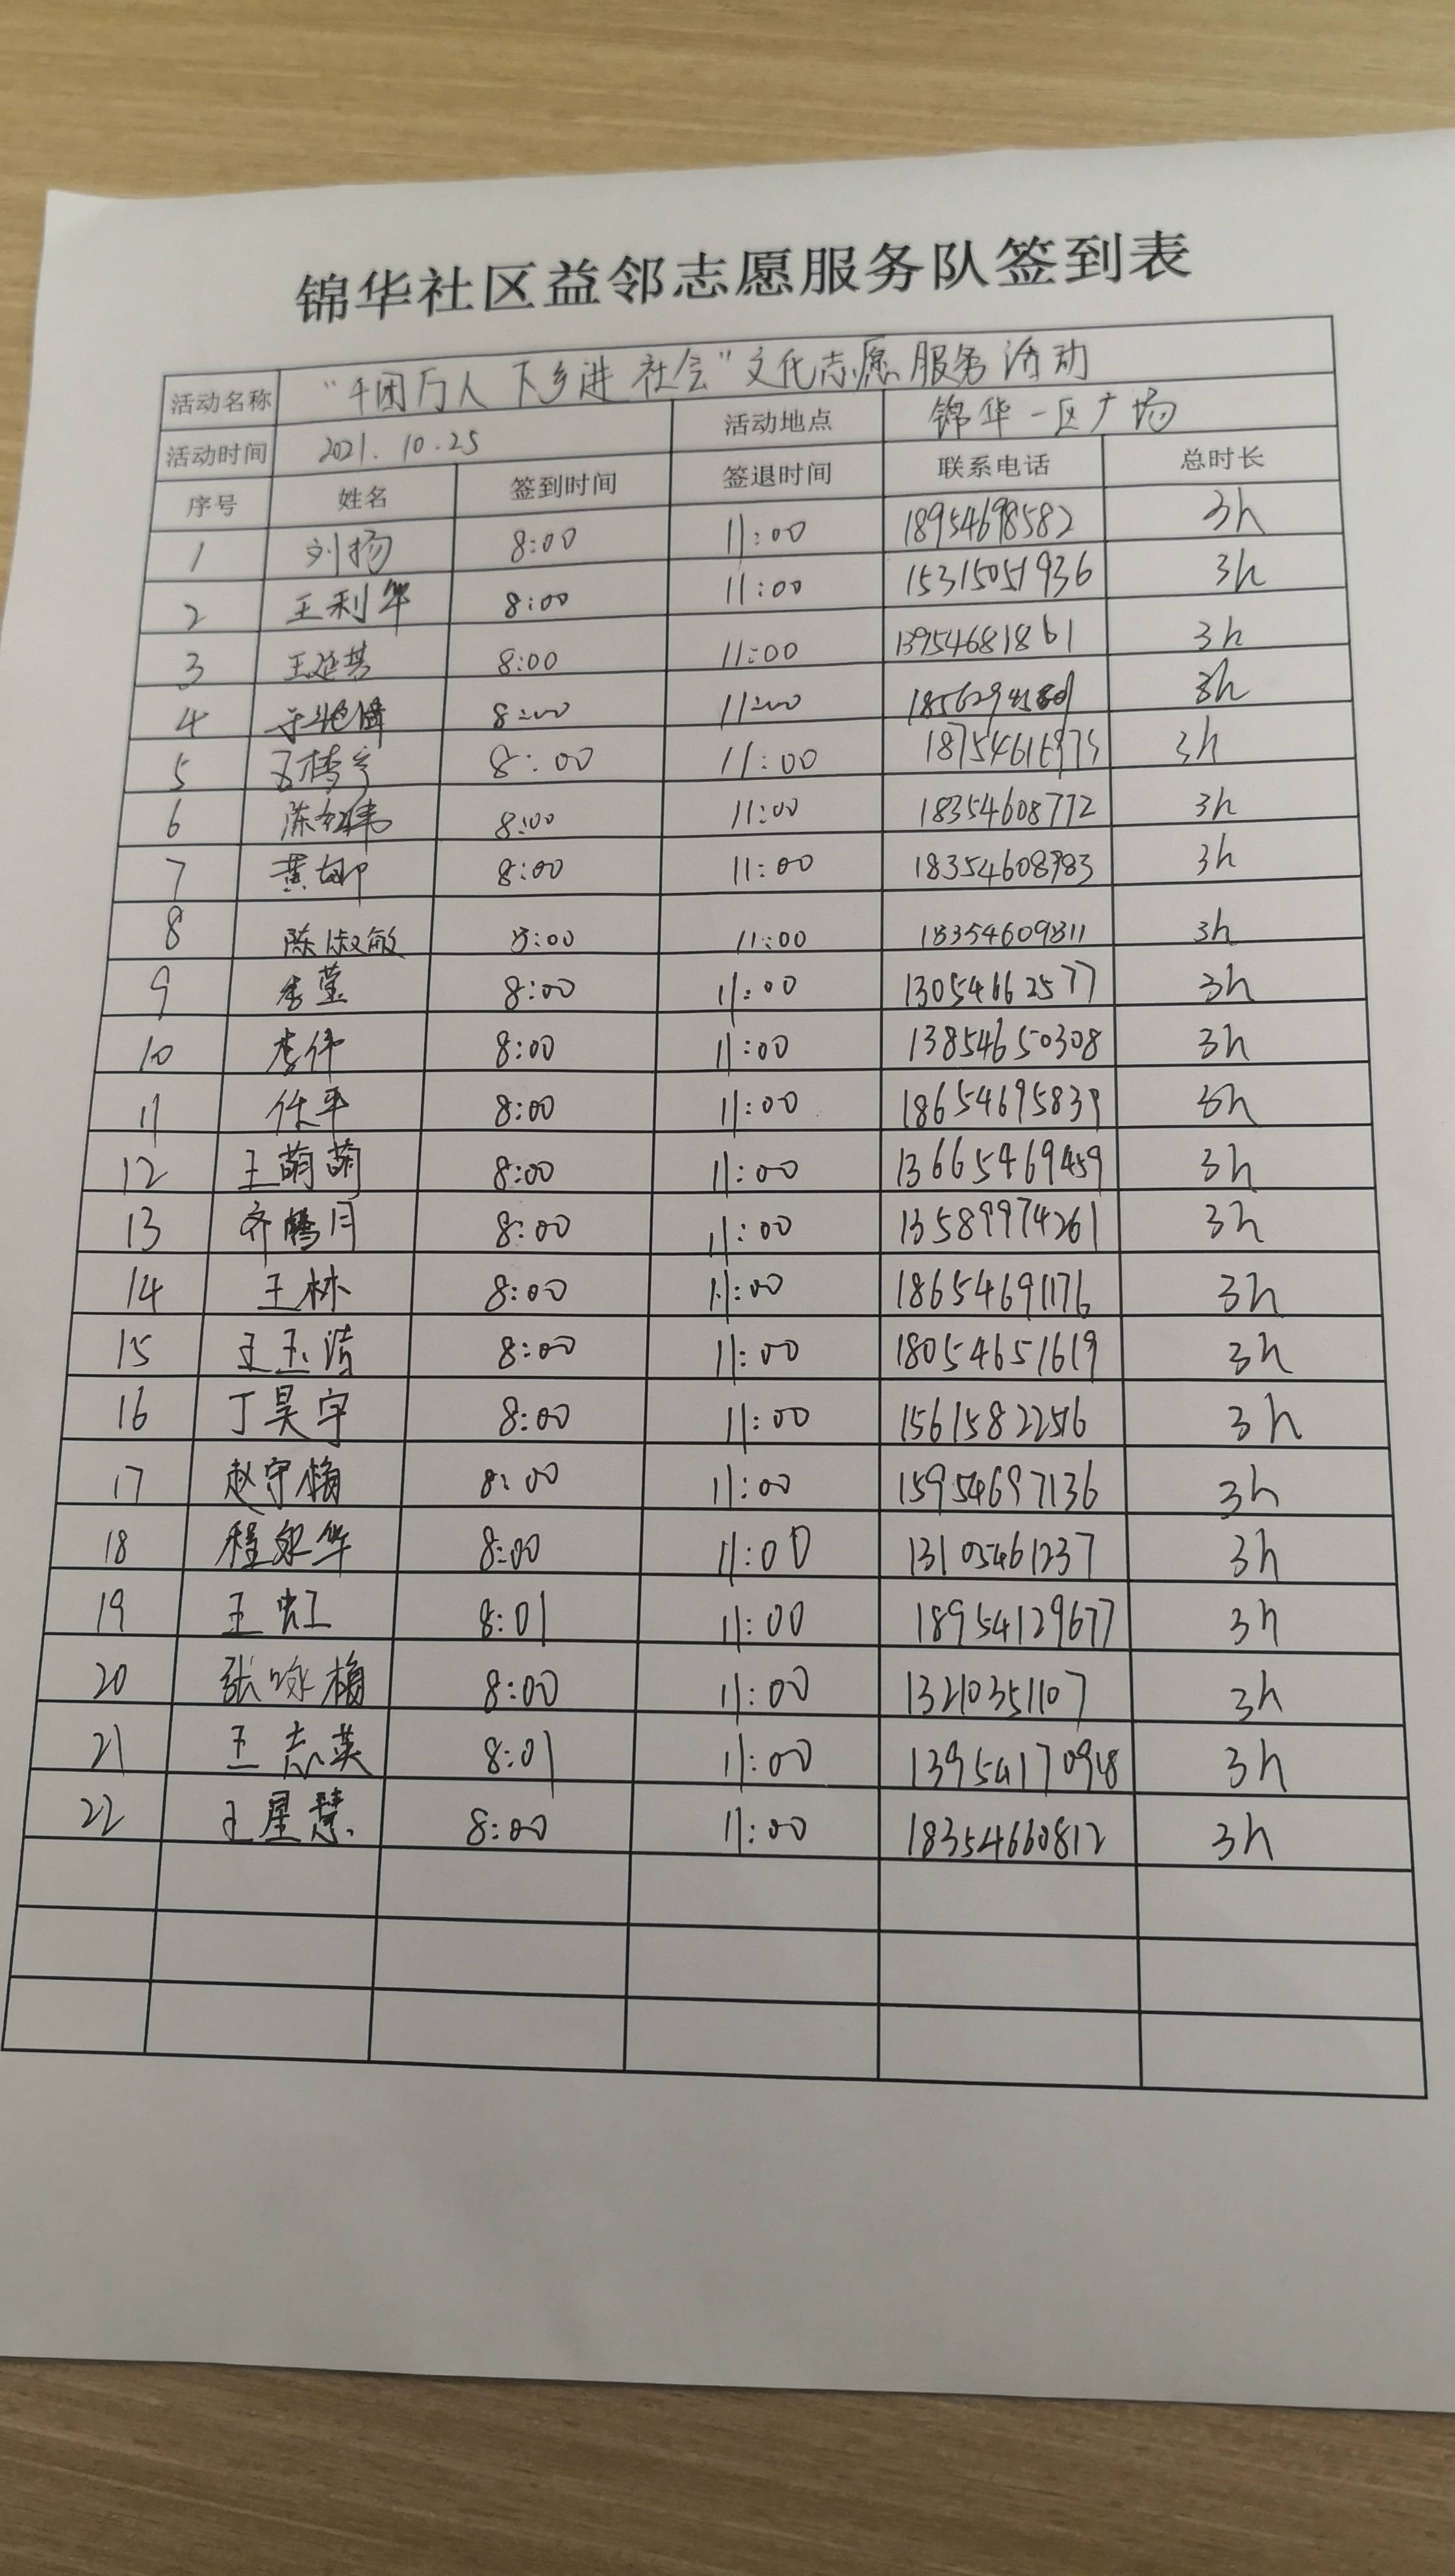 锦华社区益邻志愿服务队签到表
活动名称 “千团万人下乡进社会”文化志愿服务活动
活动时间 2021.10.25 活动地点 锦华一区广场
序号 姓名 签到时间 签退时间 联系电话 总时长
1 刘扬 8:00 11:00 18954698582 3h
2 王利华 8:00 11:00 15315051936 3h
3 8:00 11:00 13954681861 3h
4 8:00 11:00 3h
5 8:00 11:00 3h
6 陈红伟 8:00 11:00 18354608772 3h
7 黄娜 8:00 11:00 18354608783 3h
8 陈淑敏 8:00 11:00 18354609811 3h
9 李莹 8:00 11:00 13054662577 3h
10 李伟 8:00 11:00 13854650308 3h
11 任平 8:00 11:00 18654695839 3h
12 王萌萌 8:00 11:00 13665469459 3h
13 齐腾月 8:00 11:00 13589974261 3h
14 王林 8:00 11:00 18654691176 3h
15 王玉洁 8:00 11:00 18054651619 3h
16 丁昊宇 8:00 11:00 15615822516 3h
17 赵守梅 8:00 11:00 15954697136 3h
18 程永华 8:00 11:00 13105461237 3h
19 王虹 8:01 11:00 18954129677 3h
20 张咏梅 8:00 11:00 13210351107 3h
21 王志英 8:01 11:00 13954170948 3h
22 王星慧 8:00 11:00 18354660812 3h